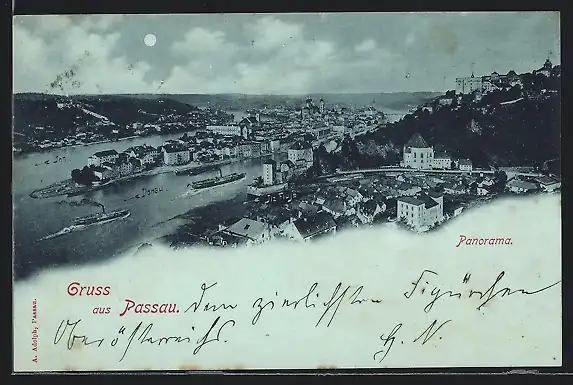 Donau.
Panorama.
Gruss
aus Passau. dem zierlichsten Figürchen
Oberösterreichs. H. N.
A. Adolph, Passau.